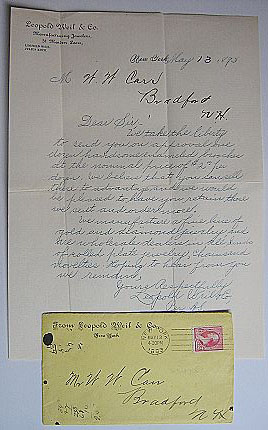 Leopold Weil & Co.
Manufacturing Jewelers,
Maiden Lane,
New York, May 13 1893
M W. W. Carr
Bradford
N.H.
Dear Sir:
We take the liberty
to send you on approval one
dozen hand enameled brooches
at the nominal price of per
dozen. We believe that you can sell
these to advantage and we would
be pleased to have you return those
we sent and order more.
We manufacture a fine line of
gold and diamond jewelry and
are wholesale dealers in all kinds
of rolled plate jewelry, and
novelties. Hoping to hear from you
we remain,
Yours Respectfully
Leopold Weil & Co
From Leopold Weil & Co.
New York
MAY 13
4 30 PM
1893
Mr W. W. Carr
Bradford
N H